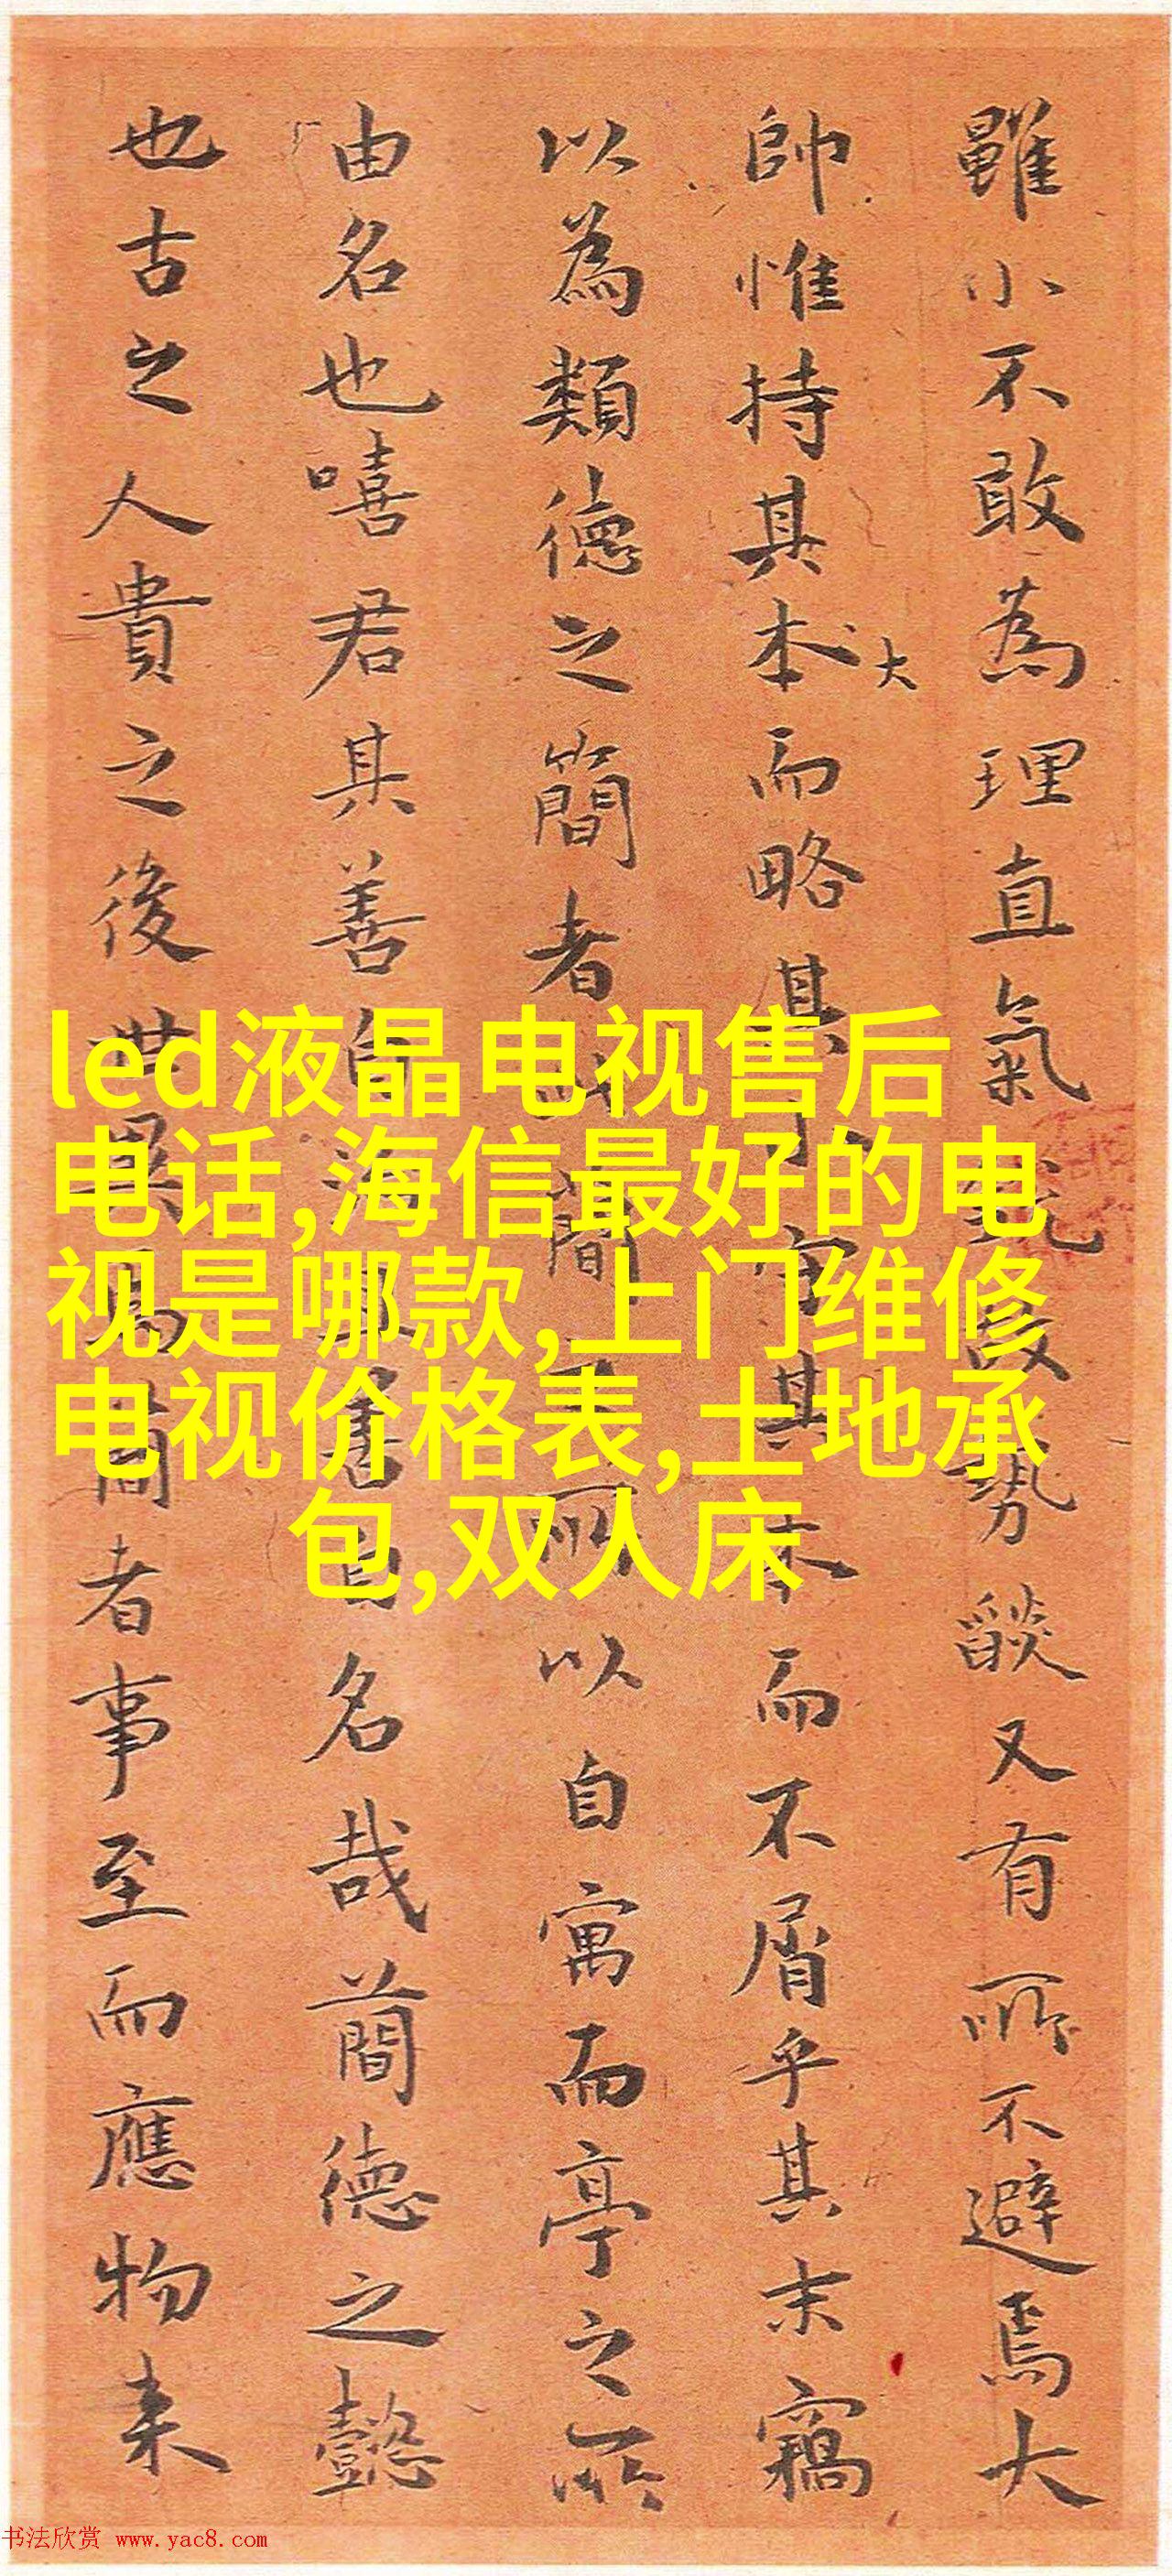 雖小不敢為理直氣勢燄又有所不避焉大
帥惟持其本而略其守其本而不屑乎其末竊
大
以為類德之簡者簡所以自寓而亭之所
由名也嘻君其善自善自名哉簡德之懿
也古之人貴之後世異焉簡者事至而應物来
led液晶电视售后
电话,海信最好的电
视是哪款,上门维修
电视价格表,土地承
包,双人床
书法欣赏 www.yac8.com